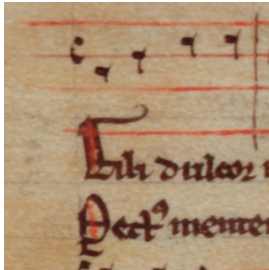 Tibi dulcor
Pectꝰ mentem